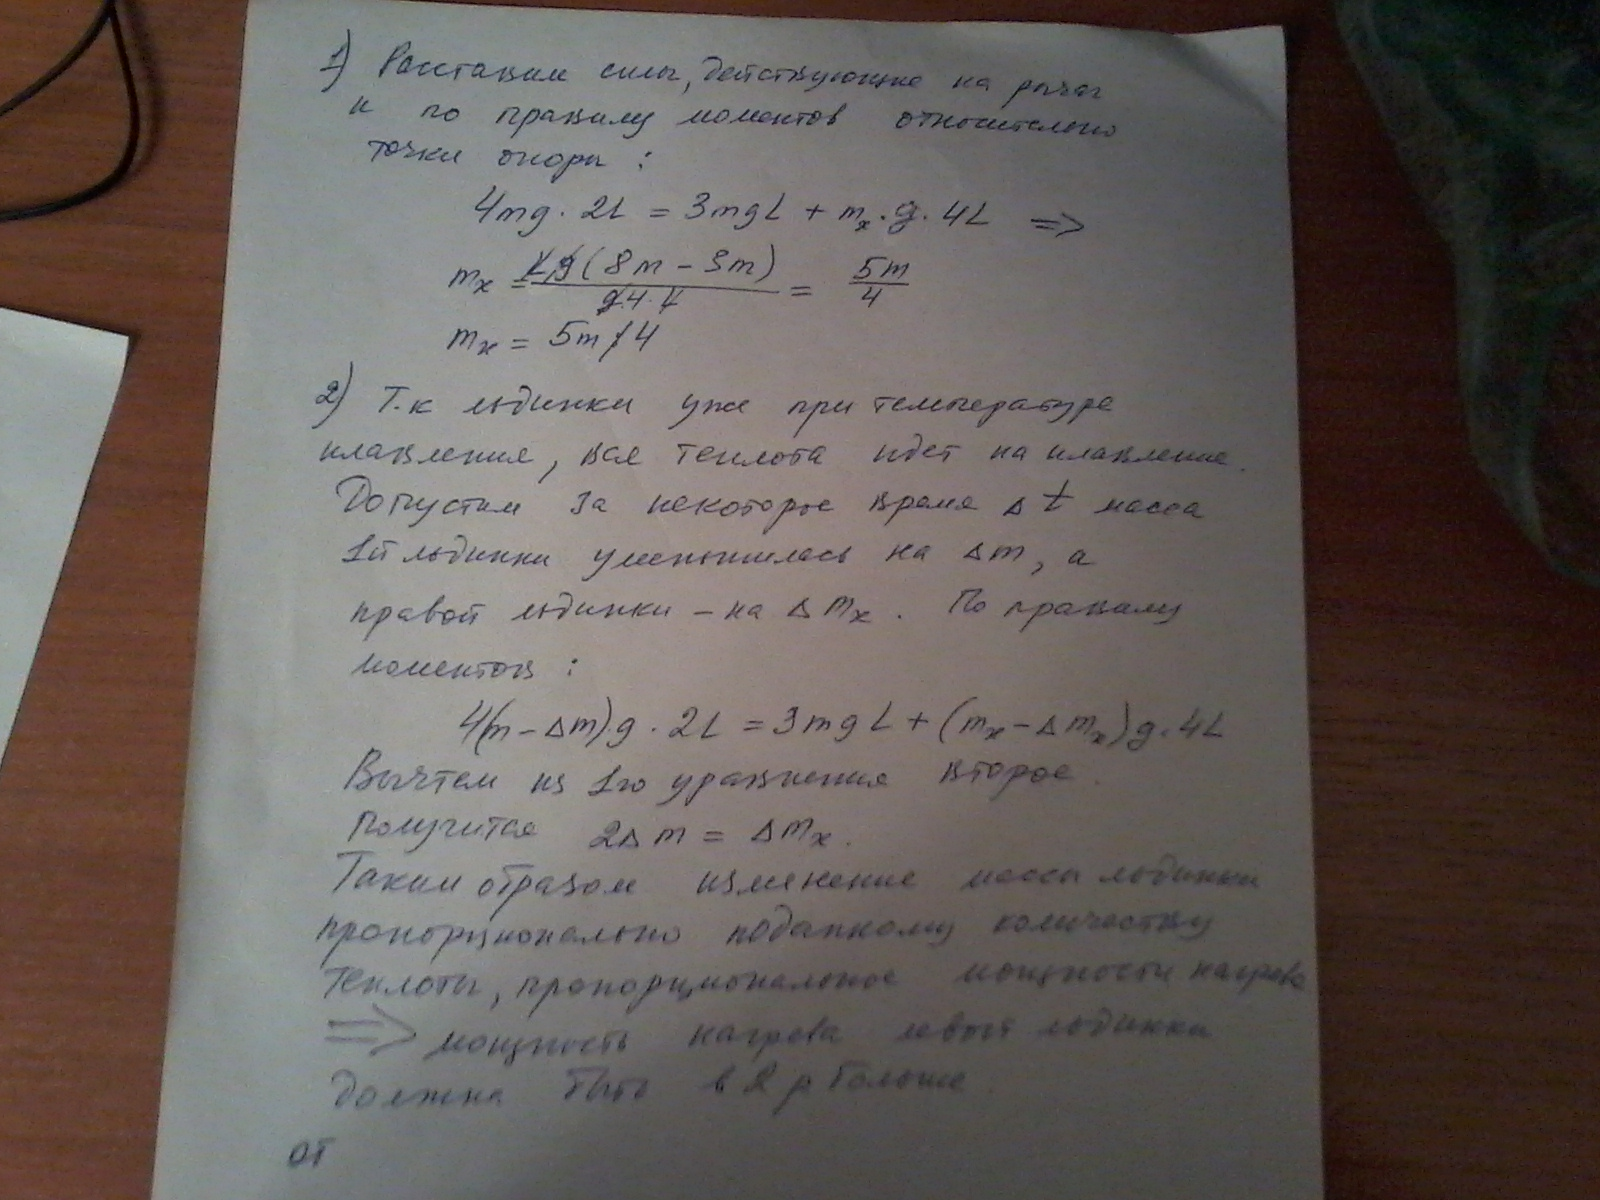 1) Расставим силы, действующие на рычаг
и по правилу моментов относительно
точки опоры:
4mg · 2L = 3mgL + mₓ · g · 4L =>
mₓ = Lg(8m - 3m) / g·4·L = 5m/4
mₓ = 5m/4
2) Т.к льдинки уже при температуре
плавления, вся теплота идет на плавление.
Допустим за некоторое время Δt масса
1й льдинки уменьшилась на Δm, а
правой льдинки - на Δmₓ. По правилу
моментов:
4(m - Δm)g · 2L = 3mgL + (mₓ - Δmₓ)g·4L
Вычтем из 1го уравнения второе.
Получится 2Δm = Δmₓ.
Таким образом изменение массы льдинки
пропорционально поданному количеству
теплоты, пропорциональное мощности нагрева
=> мощность нагрева левой льдинки
должна быть в 2 р больше
От